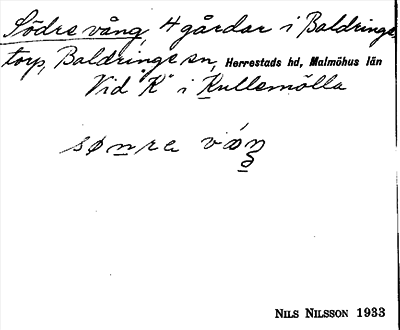 Södra vång, 4 gårdar i Baldringe-
torp, Baldringe sn, Herrestads hd, Malmöhus län
Vid "K" i Kullemölla
NILS NILSSON 1933